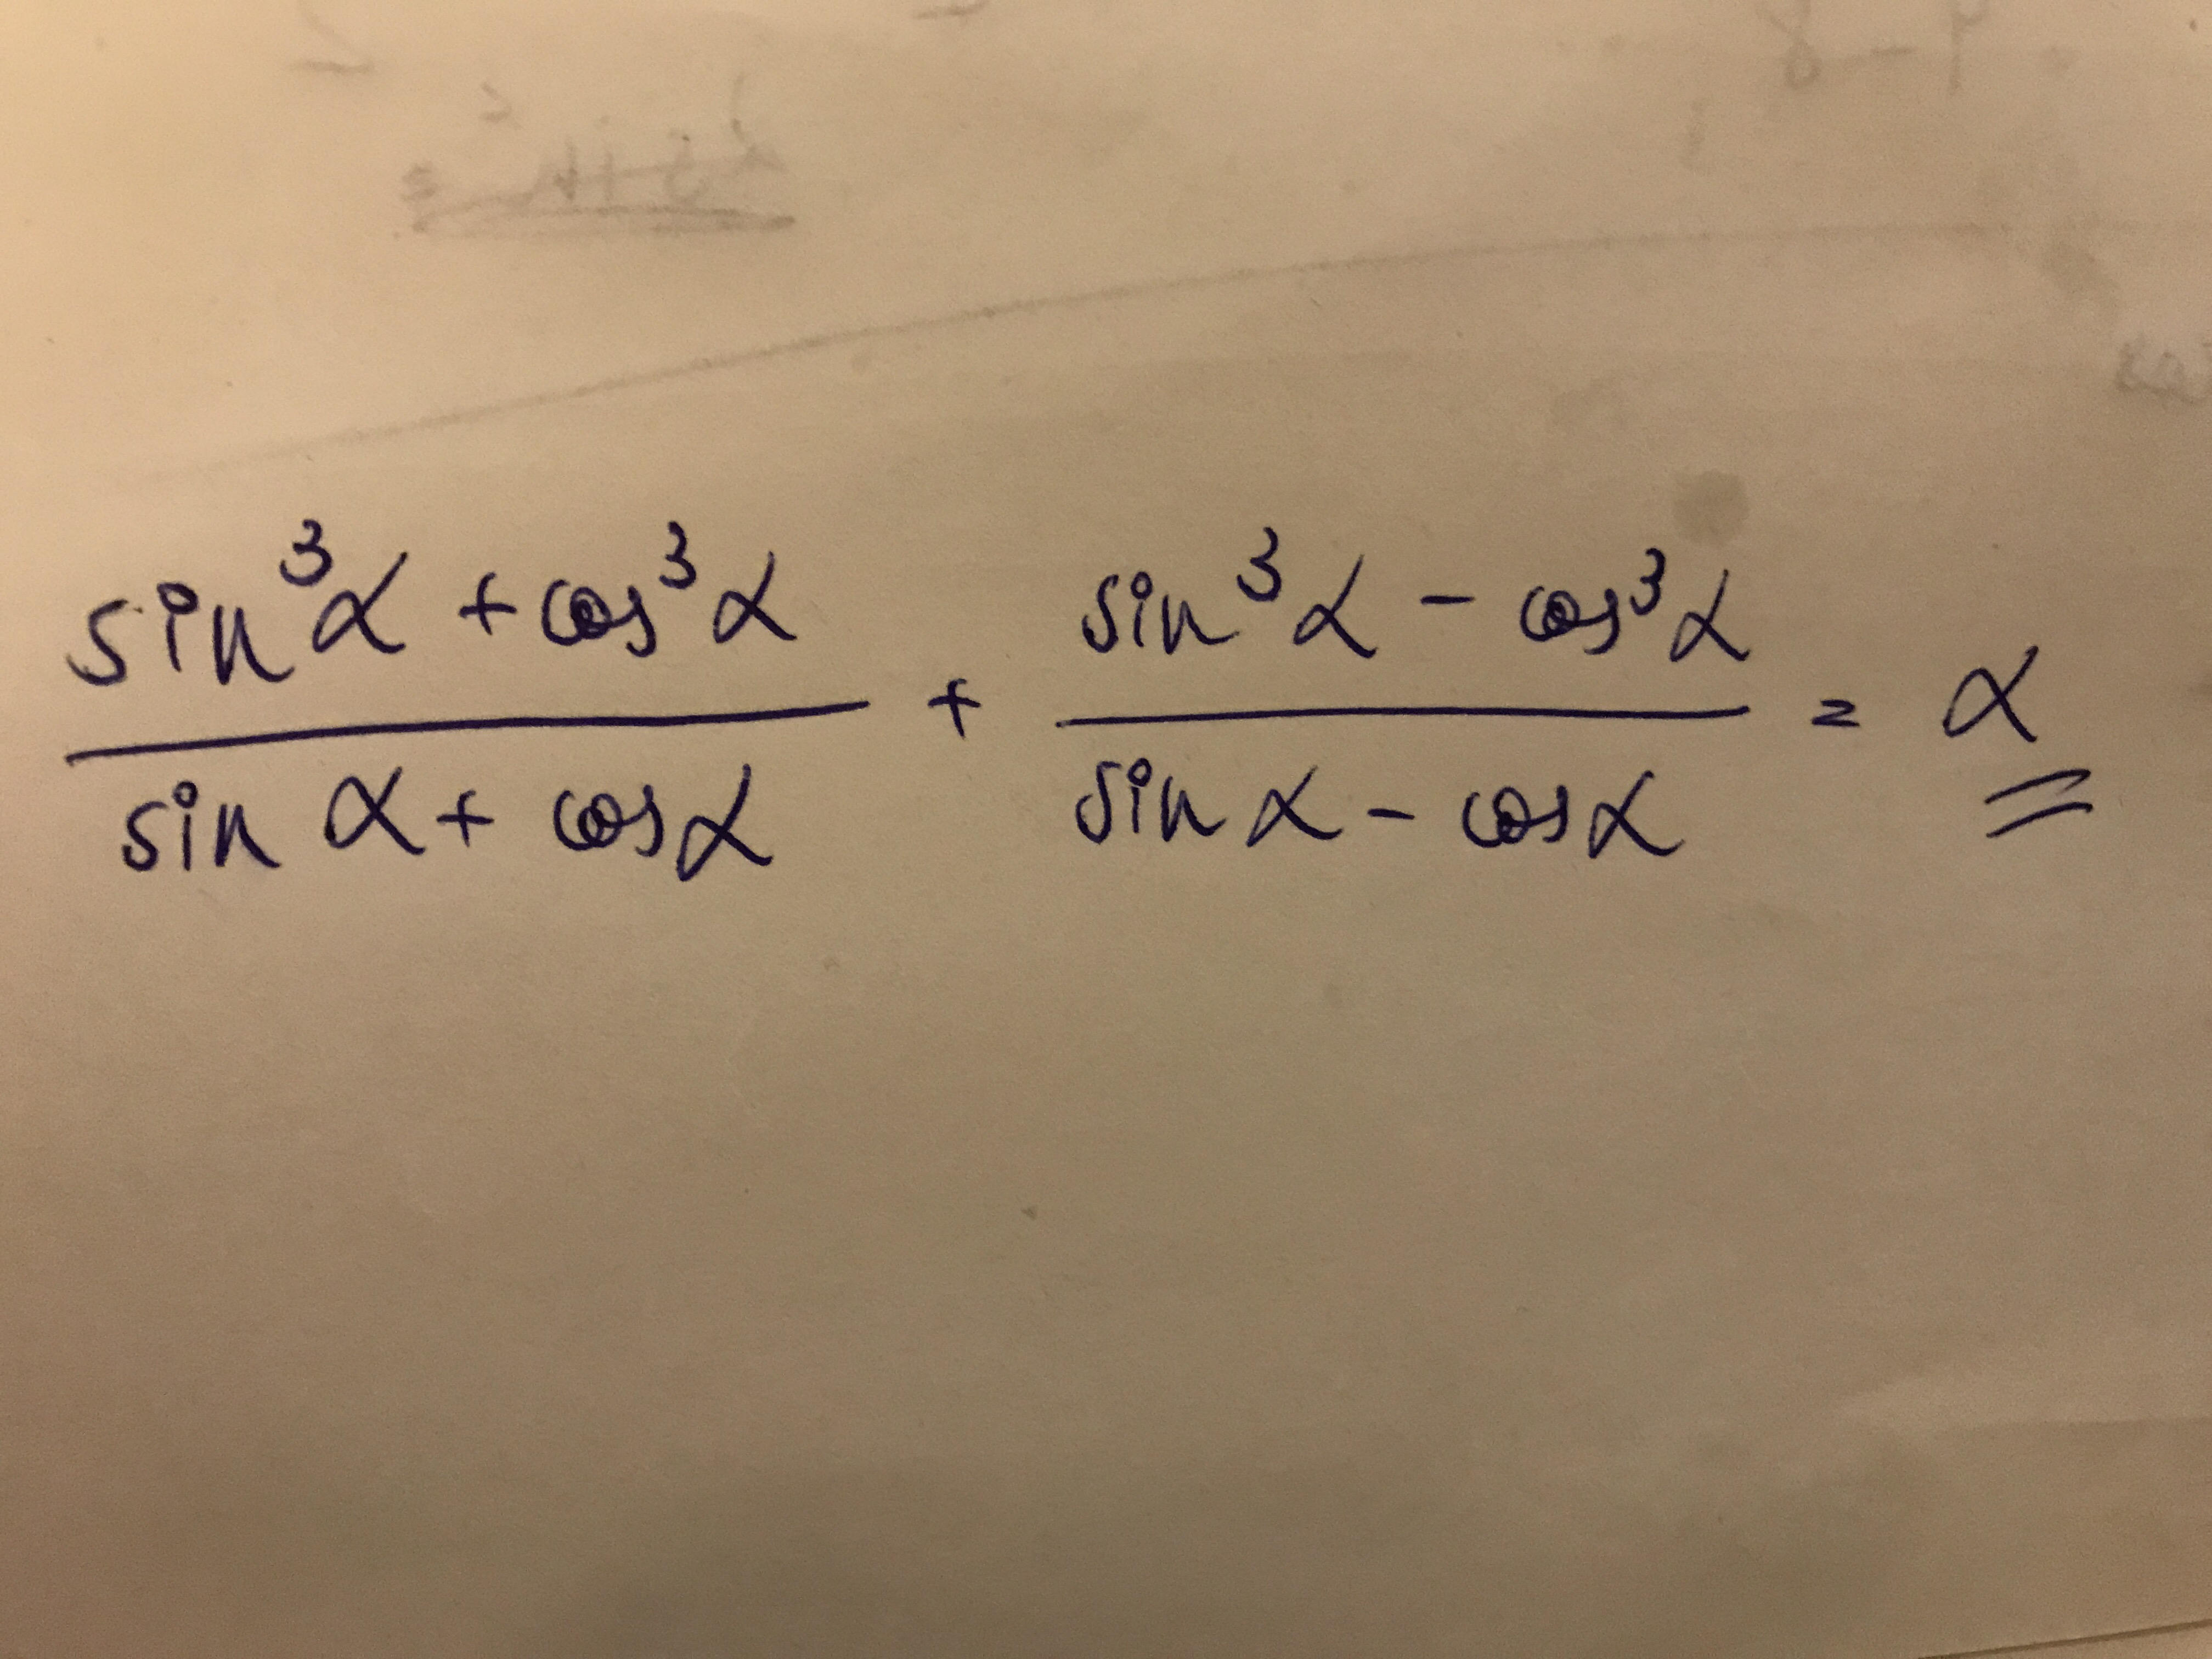 sin³α + cos³α / sin α + cos α + sin³α - cos³α / sin α - cos α = α